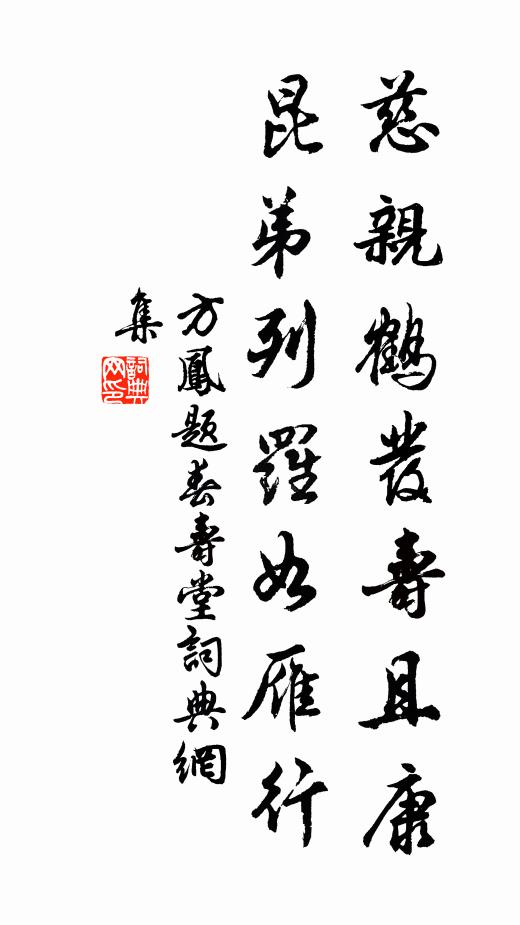 慈親鶴發壽且康
昆弟列羅如雁行
方鳳題春壽堂詞典網
集
詞典
网印